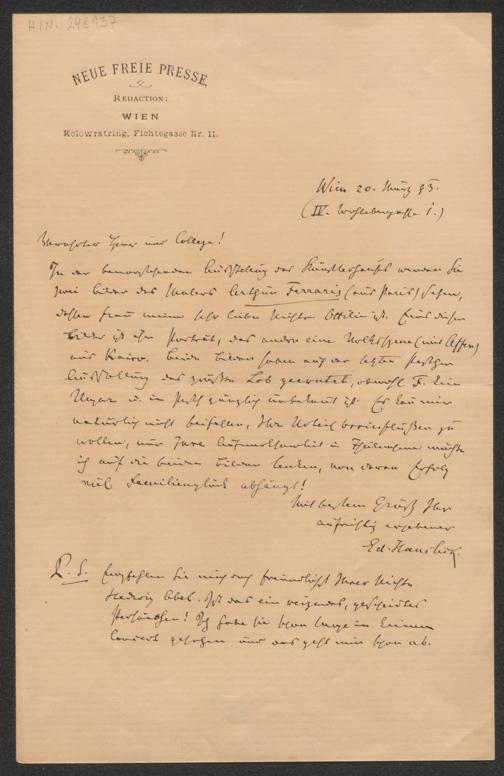 H.I.N. 243937
NEUE FREIE PRESSE.
REDACTION:
WIEN
Kolowratring, Fichtegasse Nr. 11.
Wien 20. März 93.
(IV. Wohllebengasse 1.)
Verehrter Herr und College!
In der bevorstehenden Ausstellung des Künstlerhauses werden Sie
zwei Bilder des Malers Arthur Ferraris (aus Paris) sehen,
dessen Frau meine sehr liebe Nichte Ottilie ist. Eines dieser
Bilder ist ihr Porträt, das andere eine Volksszene (mit Affen)
aus Kairo. Beide Bilder haben auf der letzten Pester
Ausstellung das größte Lob geerntet, obwohl F. kein
Ungar u. in Pest gänzlich unbekannt ist. Es kann mir
natürlich nicht beifallen, Ihr Urteil beeinflußen zu
wollen, nur Ihre Aufmerksamkeit u. Theilnahme möchte
ich auf die beiden Bilder lenken, von deren Erfolg
viel Familienglück abhängt!
Mit bestem Gruß Ihr
aufrichtig ergebener
Ed. Hanslick.
P.S. Empfehlen Sie mich auch freundlichst Ihrer Nichte
Hedwig Abel. Ist das ein reizendes, gescheidtes
Persönchen! Ich habe sie schon lange in keinem
Concert gesehen und das geht mir schon ab.